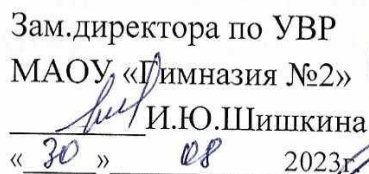 Зам.директора по УВР
МАОУ «Гимназия №2»
И.Ю.Шишкина
« 30 » 08 2023г.